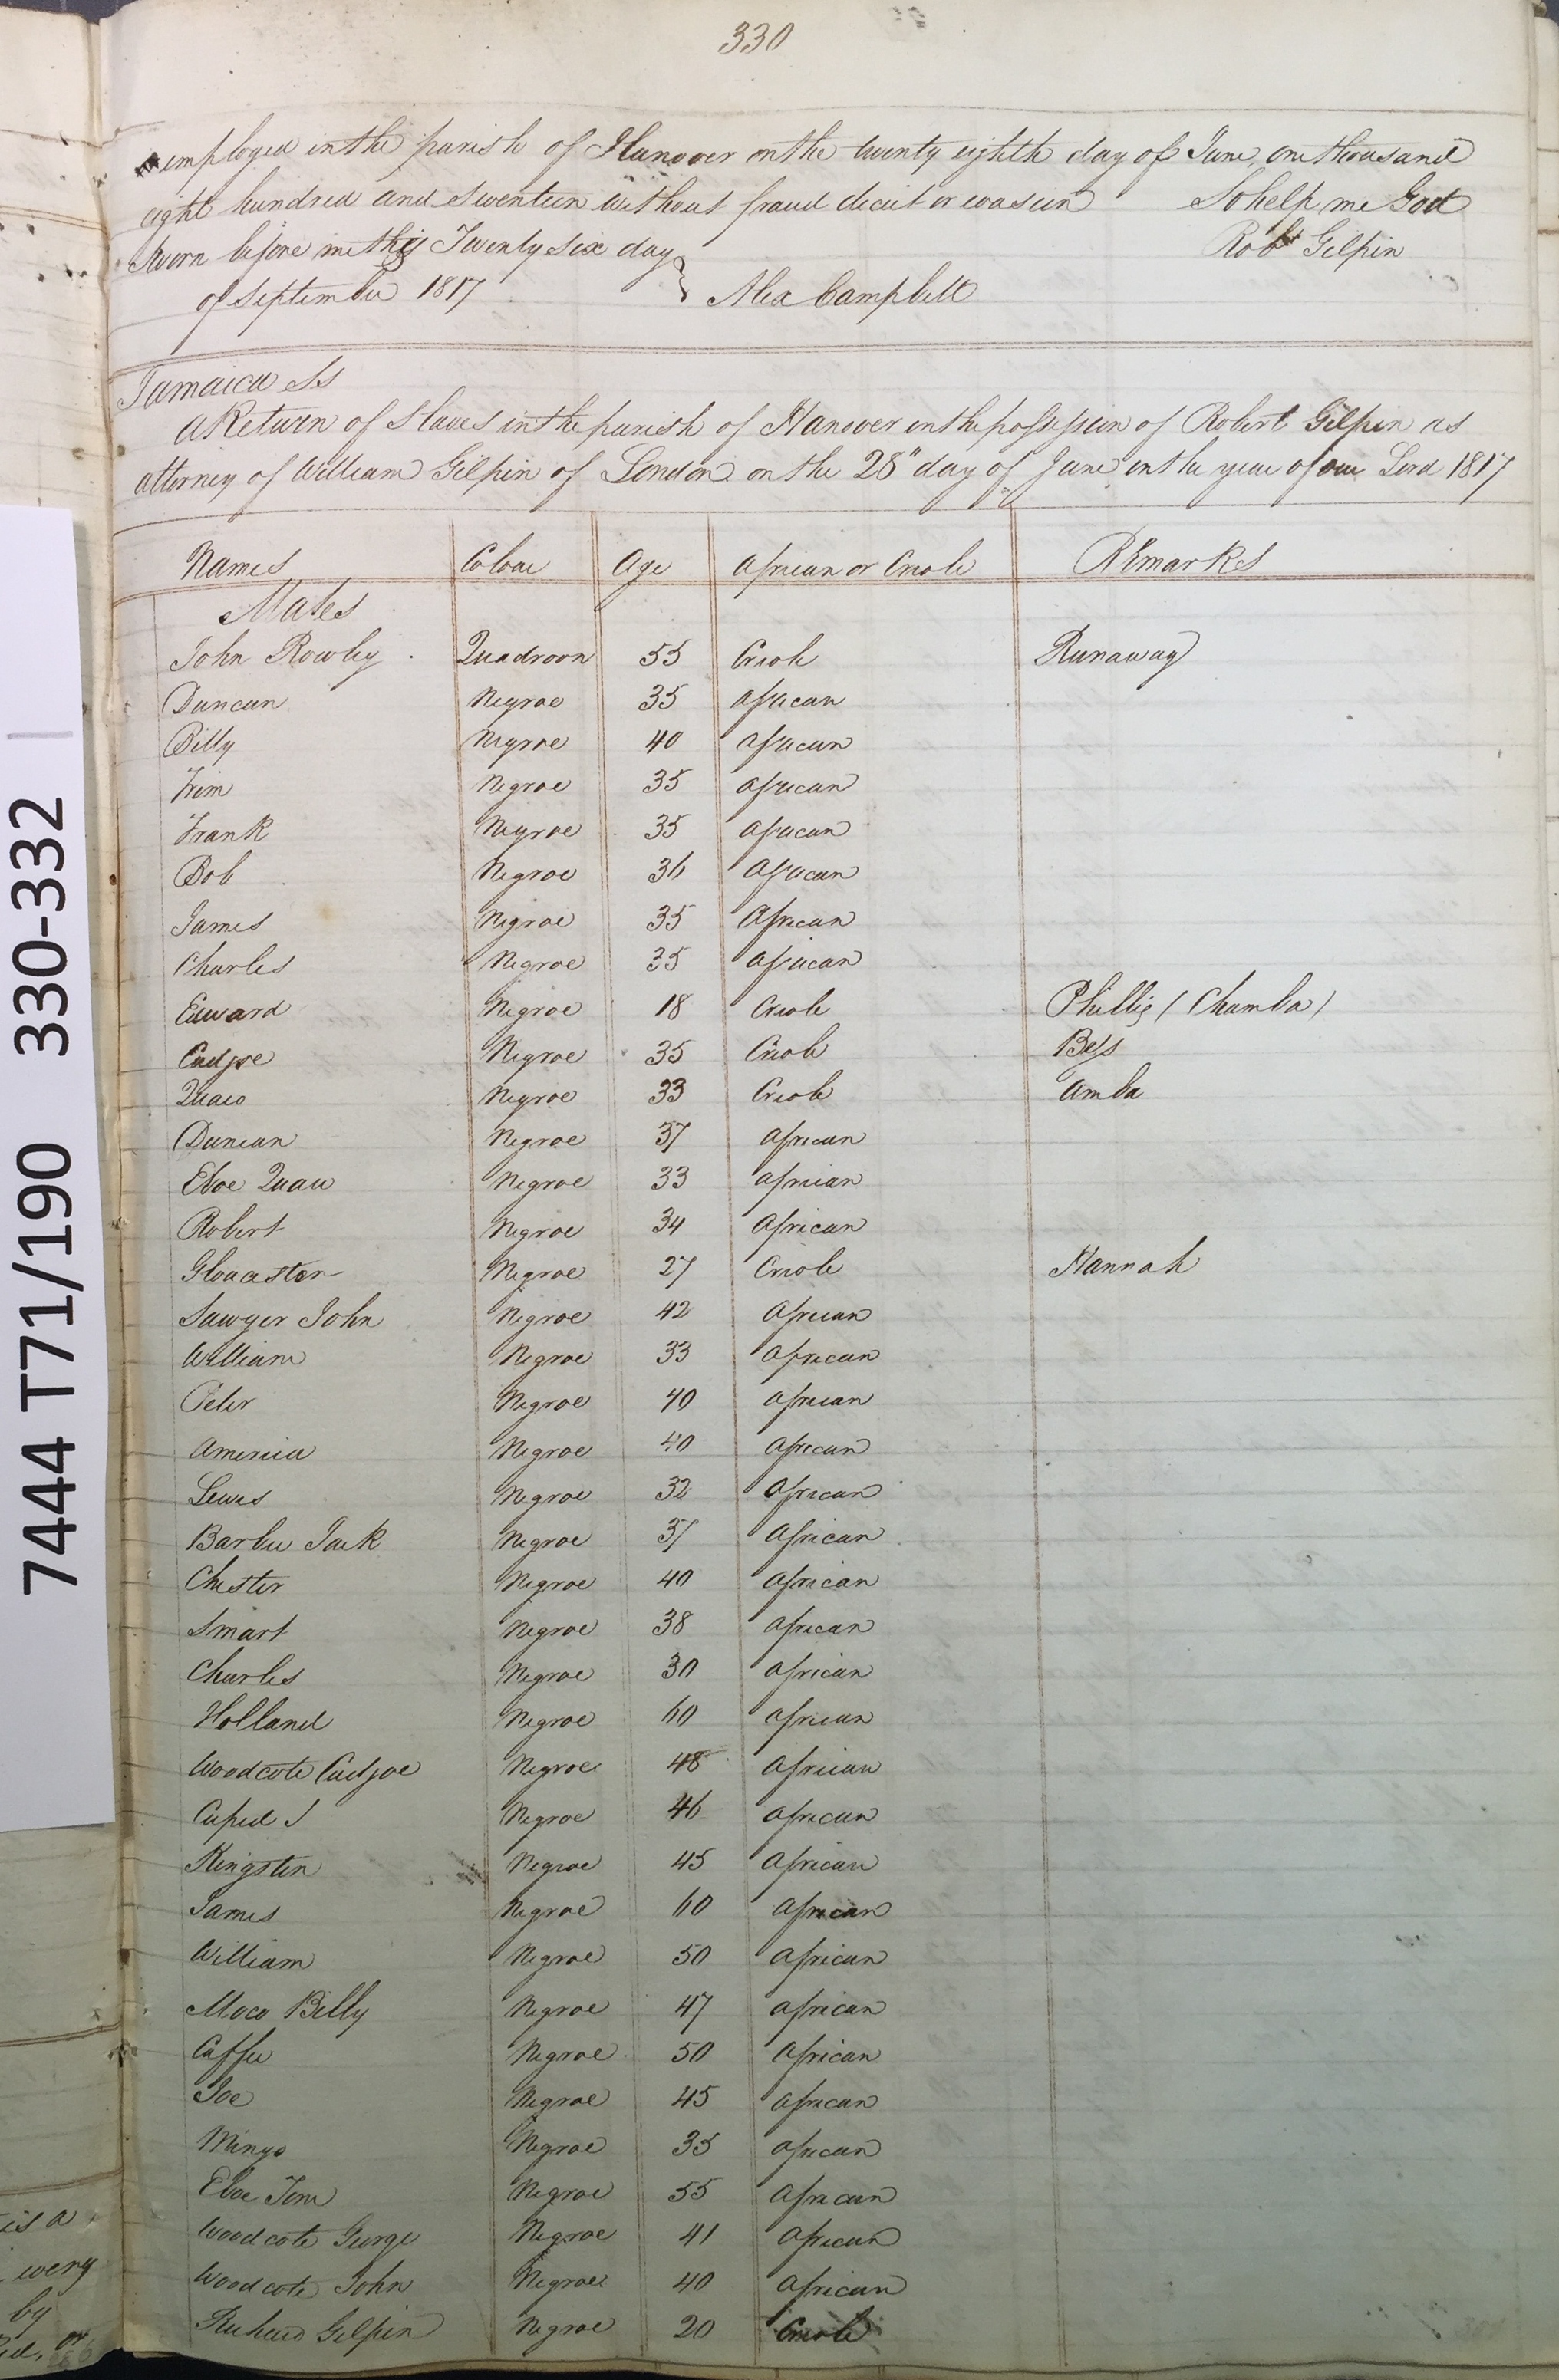 330
employed in the parish of Hanover on the twenty eighth day of June one thousand
eight hundred and seventeen without fraud deceit or evasion So help me God
Sworn before me this Twenty six day Robt Gilpin
of September 1817 } Alex Campbell
Jamaica Ss
A Return of Slaves in the parish of Hanover in the possession of Robert Gilpin as
attorney of William Gilpin of London on the 28" day of June in the year of our Lord 1817
Names Colour Age African or Creole REmarks
Males
John Rowley Quadroon 55 Creole Runaway
Duncan Negroe 35 African
Billy Negroe 40 African
Trim Negroe 35 African
Frank Negroe 35 African
Bob Negroe 36 African
James Negroe 35 African
Charles Negroe 35 African
Edward Negroe 18 Creole Phillis (Chamba)
Cudjoe Negroe 35 Creole Bess
Quaco Negroe 33 Creole Amba
Duncan Negroe 37 African
Eboe Quaw Negroe 33 African
Robert Negroe 34 African
Gloucester Negroe 27 Creole Hannah
Sawyer John Negroe 42 African
William Negroe 33 African
Peter Negroe 40 African
America Negroe 40 African
Lewis Negroe 32 African
Barbu Jack Negroe 37 African
Chester Negroe 40 African
Smart Negroe 38 African
Charles Negroe 30 African
Holland Negroe 60 African
Woodcote Cudjoe Negroe 48 African
Cupid S Negroe 46 African
Kingston Negroe 45 African
James Negroe 60 African
William Negroe 50 African
Moco Billy Negroe 47 African
Cuffee Negroe 50 African
Joe Negroe 45 African
Mingo Negroe 35 African
Eboe Tom Negroe 55 African
Woodcote George Negroe 41 African
Woodcote John Negroe 40 African
Richard Gilpin Negroe 20 Creole
7444 T71/190 330-332
is a
very
by
or